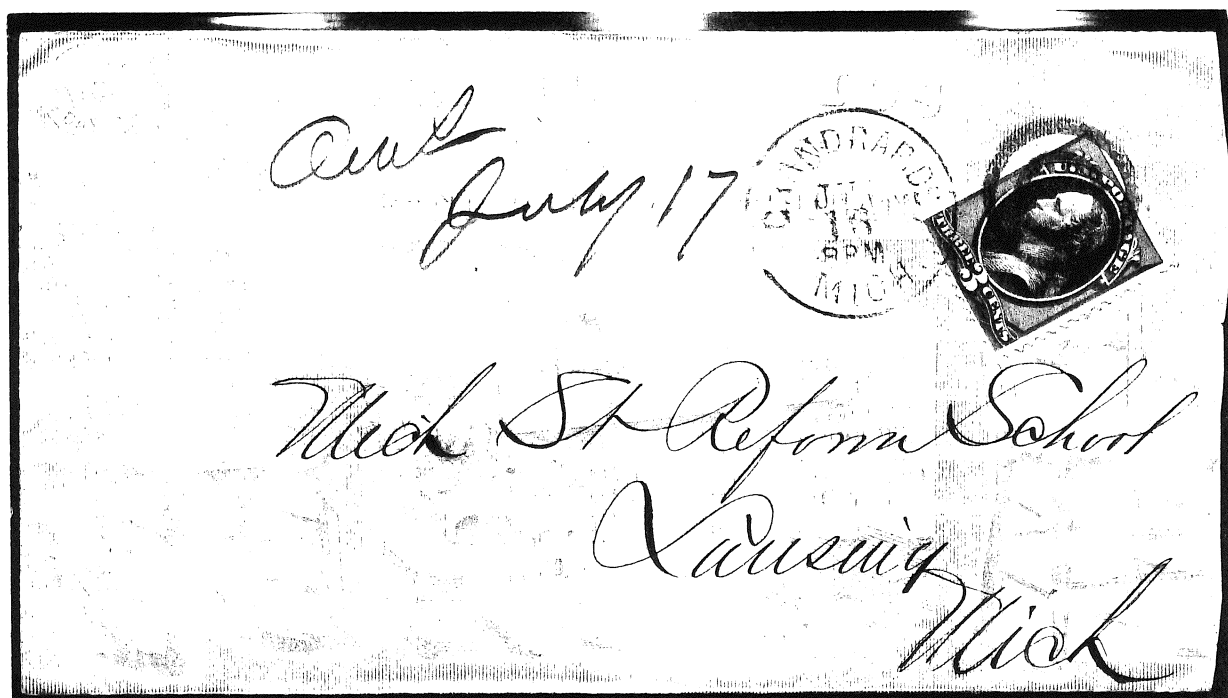 July 17
GRAND RAPIDS
16
8 PM
MICH
U.S. POSTAGE
THREE 3 CENTS
Mich St Reform School
Lansing
Mich